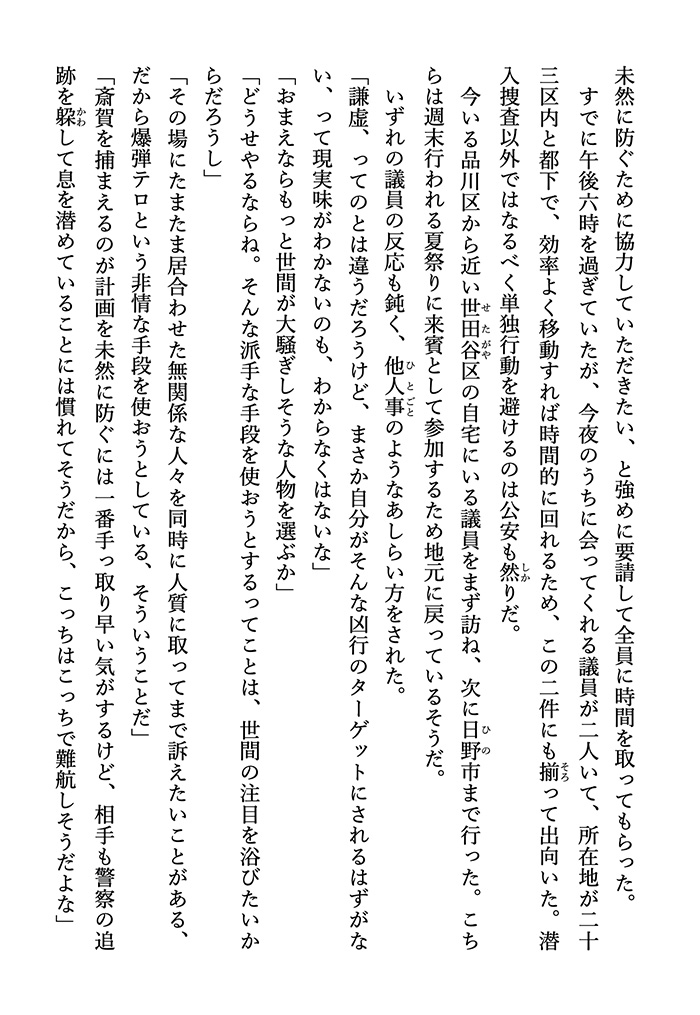 未然に防ぐために協力していただきたい、と強めに要請して全員に時間を取ってもらった。
すでに午後六時を過ぎていたが、今夜のうちに会ってくれる議員が二人いて、所在地が二十
三区内と都下で、効率よく移動すれば時間的に回れるため、この二件にも揃って出向いた。潜
入捜査以外ではなるべく単独行動を避けるのは公安も然りだ。
今いる品川区から近い世田谷区の自宅にいる議員をまず訪ね、次に日野市まで行った。こち
らは週末行われる夏祭りに来賓として参加するため地元に戻っているそうだ。
いずれの議員の反応も鈍く、他人事のようなあしらい方をされた。
「謙虚、ってのとは違うだろうけど、まさか自分がそんな凶行のターゲットにされるはずがな
い、って現実味がわかないのも、わからなくはないな」
「おまえならもっと世間が大騒ぎしそうな人物を選ぶか」
「どうせやるならね。そんな派手な手段を使おうとするってことは、世間の注目を浴びたいか
らだろうし」
「その場にたまたま居合わせた無関係な人々を同時に人質に取ってまで訴えたいことがある、
だから爆弾テロという非情な手段を使おうとしている、そういうことだ」
「斎賀を捕まえるのが計画を未然に防ぐには一番手っ取り早い気がするけど、相手も警察の追
跡を躱して息を潜めていることには慣れてそうだから、こっちはこっちで難航しそうだよな」